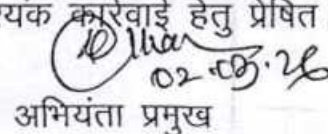 यक कार्रवाई हेतु प्रेषित
02.03.26
अभियंता प्रमुख